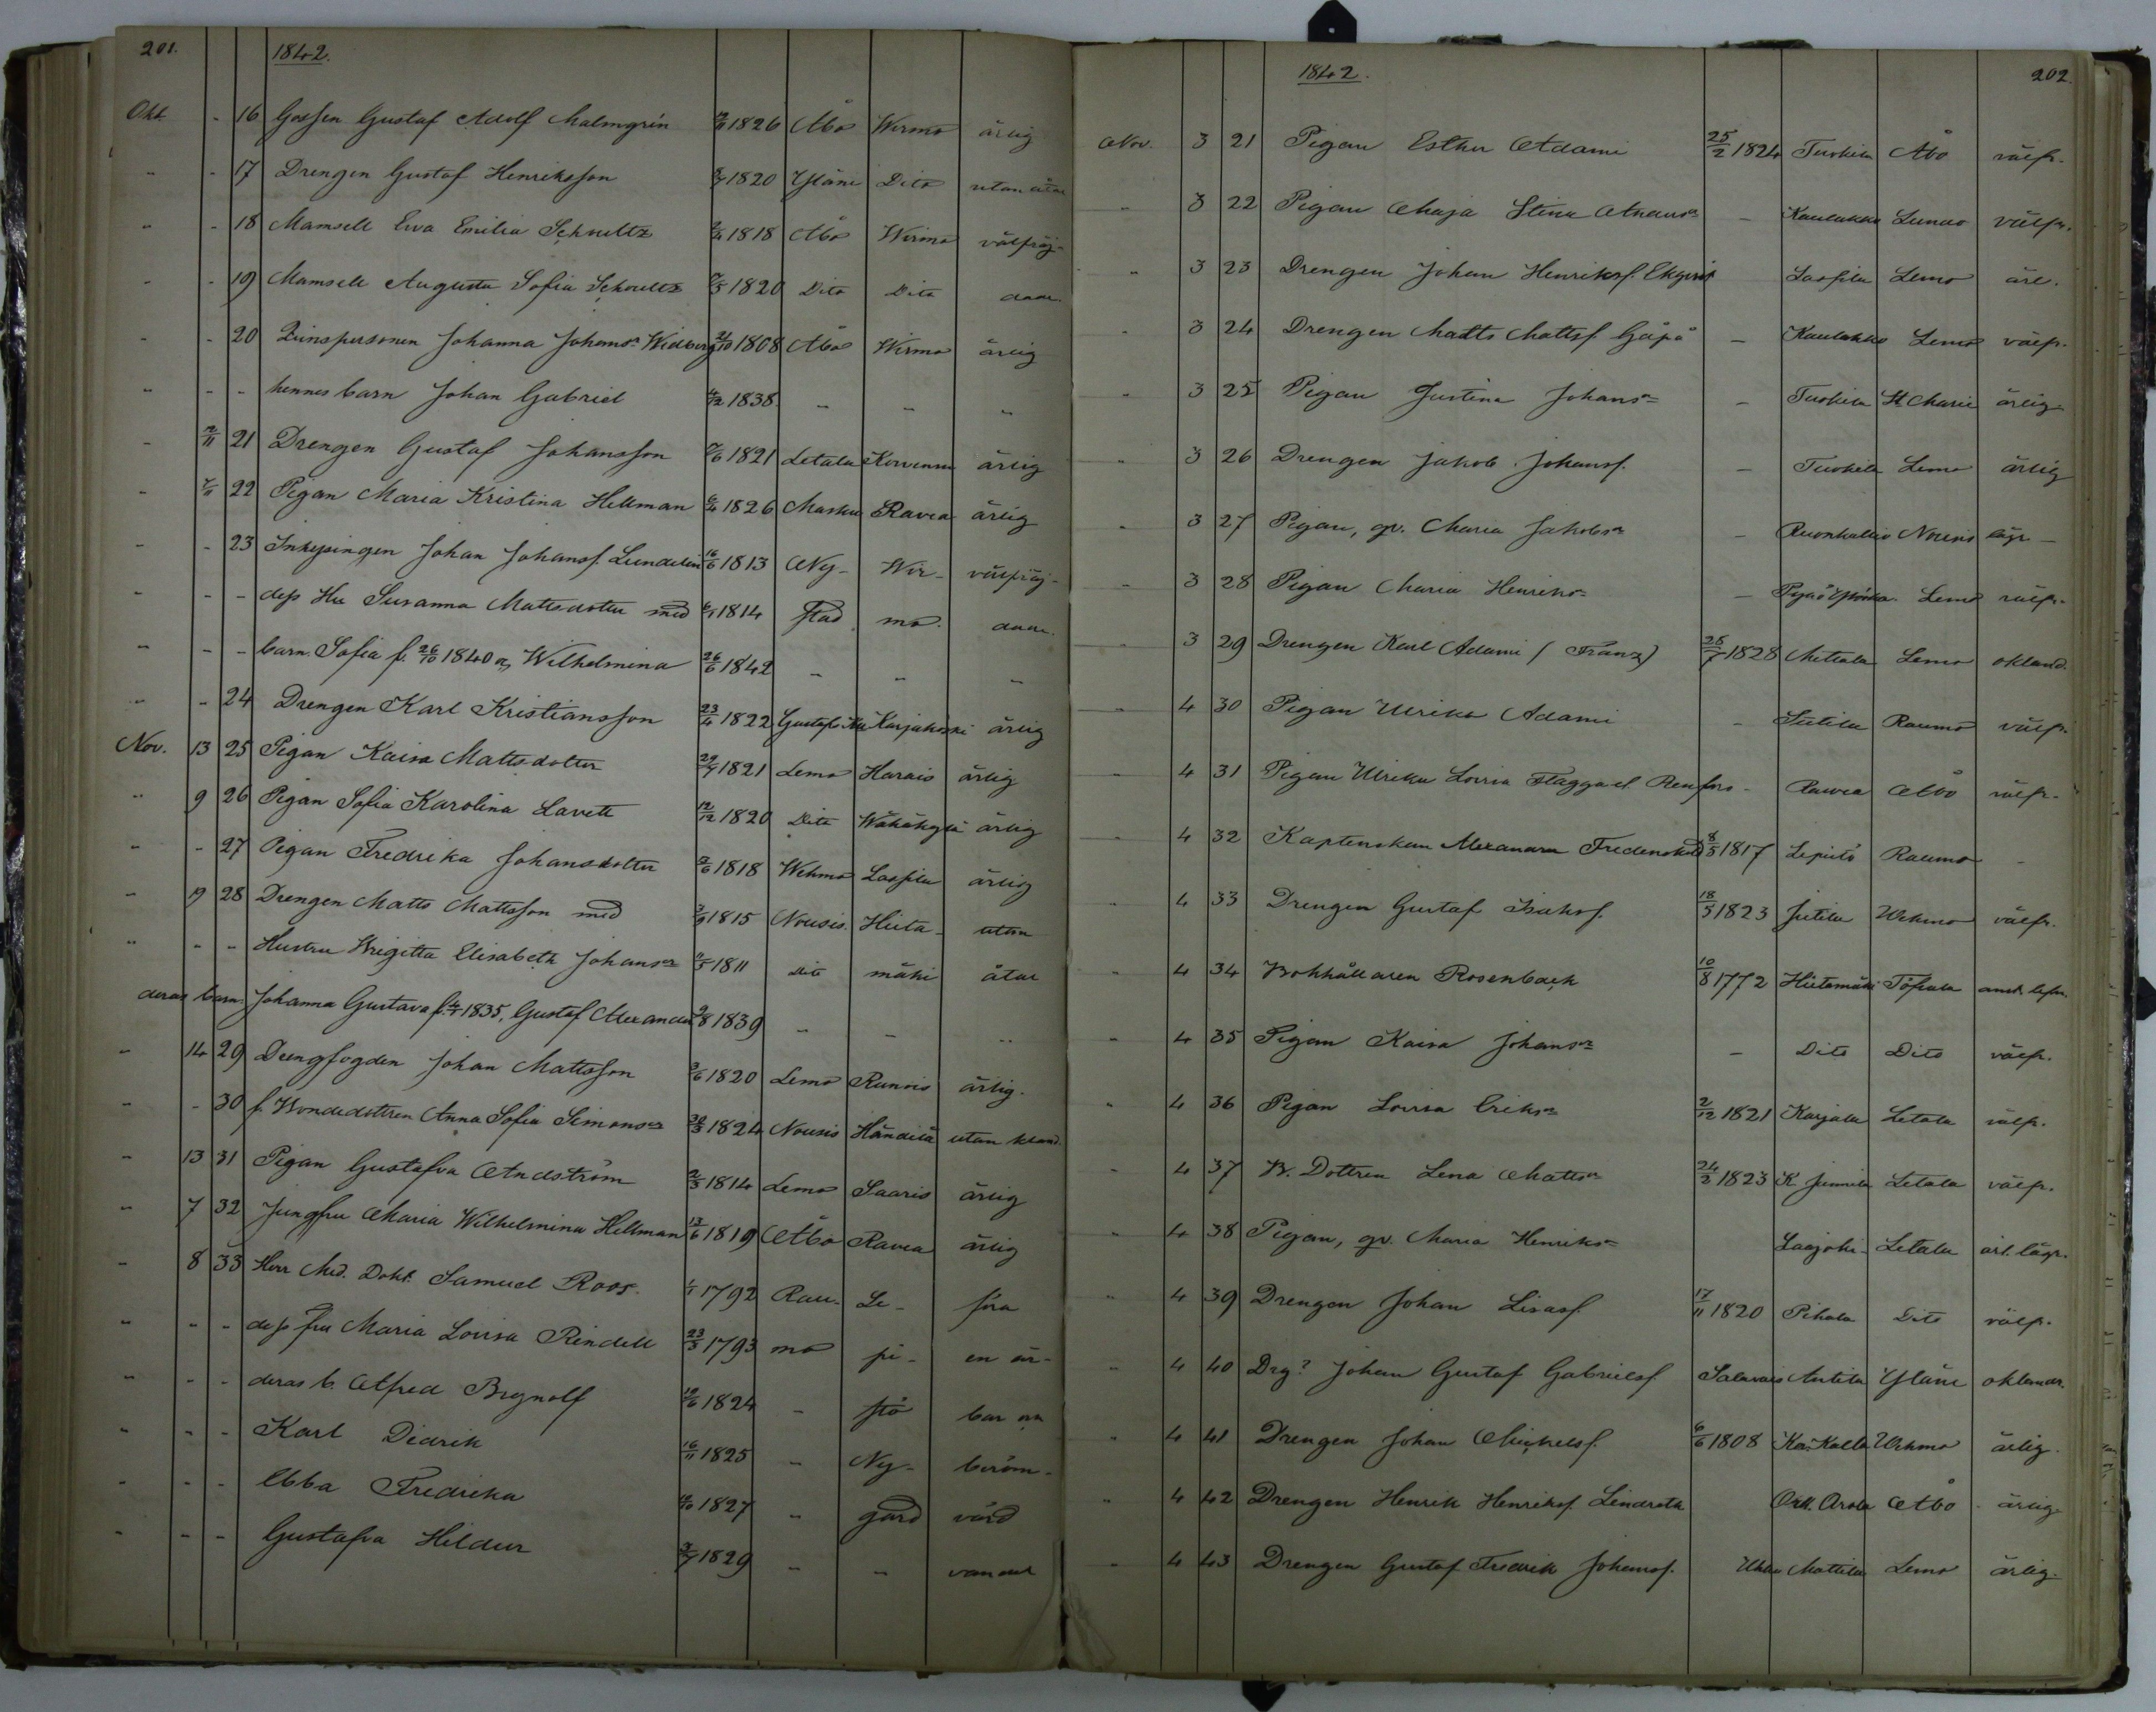 201.
1842.
Okt. - 16 Gossen Gustaf Adolf Malmgrén 1826 Åbo Wirmo ärlig
" - 17 Drengen Gustaf Henriksson 1820 Yläne Dito utan åtal
" - 18 Mamsell Eva Emilia Schoultz 1818 Åbo Wirmo välfräj-
" - 19 Mamsell Augusta Sofia Schoultz 1820 Dito Dito dade.
- - 20 Qvinspersonen Johanna Johansr Widberg 1808 Åbo Wirmo ärlig
" - - hennes barn Johan Gabriel 1838 " " "
- 2/11 21 Drengen Gustaf Johansson 1821 Letala Korvenm ärlig
- 22 Pigan Maria Kristina Hellman 1826 Masku Ravea ärlig
- - 23 Inhysingen Johan Johanss. Lundelin 16/6 1813 Ny- Wir- välfräj-
- - - dess Hu Susanna Mattsdotter med 1814 stad mo. dade.
- - - barn. Sofia f. 26/10 1840 o, Wilhelmina 26/6 1842 - - -
" - 24 Drengen Karl Kristiansson 23/4 1822 Gustafs Karjakoski ärlig
Nov. 13 25 Pigan Kaisa Mattsdotter 29/7 1821 Lemo Harais ärlig
" 9 26 Pigan Sofia Karolina Lavett 12/12 1820 Dito Wähäkylä ärlig
- - 27 Pigan Fredrika Johansdotter 1818 Wehmo Laspila ärlig
- 19 28 Drengen Matts Mattsson med 1815 Nousis. Hiita- utan
" - - Hustru Brigitta Elisabeth Johansr 1811 Dito mäki åtal
deras barn. Johanna Gustava f. 1835, Gustaf Alexander 1839 - - "
- 14 29 Drengfogden Johan Mattsson 1820 Lemo Runois ärlig.
- - 30 f. Bondedottren Anna Sofia Simonsr 30/3 1824 Nousis Händilä utan kland.
- 13 31 Pigan Gustafva Andström 1814 Lemo Saaris ärlig
" 7 32 Jungfru Maria Wilhelmina Hellman 13/6 1819 Åbo Ravea ärlig
- 8 33 Herr Med. Dokt. Samuel Roos. 1792 Rau- Le- föra
" - - dess fru Maria Lovisa Rindell 23/3 1793 mo pi- en är-
" - - deras b. Alfred Brynolf 1824 - stö bar o,
" - - Karl Didrik 16/11 1825 - Ny- beröm-
- - - Ebba Fredrika 1827 - gård värd
- - - Gustafva Hildur 1829 - " vandel
1842.
202.
Nov. 3 21 Pigan Esther Adami 25/2 1824 Tuokila Åbo välfr.
" 3 22 Pigan Maja Stina Andersr - Kaulakko Lundo välfr.
" 3 23 Drengen Johan Henrikss. Ekqvist Laspila Lemo ärl.
" 3 24 Drengen Matts Mattss. Gåpå - Kaulakko Lemo välfr.
" 3 25 Pigan Justina Johansr - Tuokila St. Marie ärlig
" 3 26 Drengen Jakob Johanss. - Tuokila Lemo ärlig
" 3 27 Pigan, qv. Maria Jakobsr - Ruonkallio Nousis lägr -
- 3 28 Pigan Maria Henriksr - Lemo välfr.
- 3 29 Drengen Karl Adami (Franz) 28/7 1828 Mettala Lemo okland.
" 4 30 Pigan Ulrika Adami - Sutila Raumo välfr.
- 4 31 Pigan Ulrika Lovisa Flaggael Renfors - Ravea Åbo välfr.
- 4 32 Kaptenskan Alexandra Fredensköld 8/3 1817 Lepistö Raumo -
" 4 33 Drengen Gustaf Isakss. 18/5 1823 Jutila Wehmo välfr.
" 4 34 Bokhållaren Rosenback 10/8 1772 Hiitamäki Töfsala anst. lefn.
- 4 35 Pigan Kaisa Johansr - Dito Dito välfr.
" 4 36 Pigan Lovisa Eriksr 2/12 1821 Karjala Letala välfr.
" 4 37 B. Dottren Lena Mattsr 24/2 1823 K. Junnila Letala välfr.
" 4 38 Pigan, qv. Maria Henriksr Laajoki Letala ärl. lägr.
" 4 39 Drengen Johan Lisass. 17/11 1820 Pihala Dito välfr.
" 4 40 Drg? Johan Gustaf Gabrielss. Salavais Antila Yläne oklandr.
" 4 41 Drengen Johan Michelss. 6/6 1808 Kalla Wehmo ärlig.
" 4 42 Drengen Henrik Henrikss. Lindroth Arola Åbo ärlig
" 4 43 Drengen Gustaf Fredrik Johanss. Mattila Lemo ärlig.